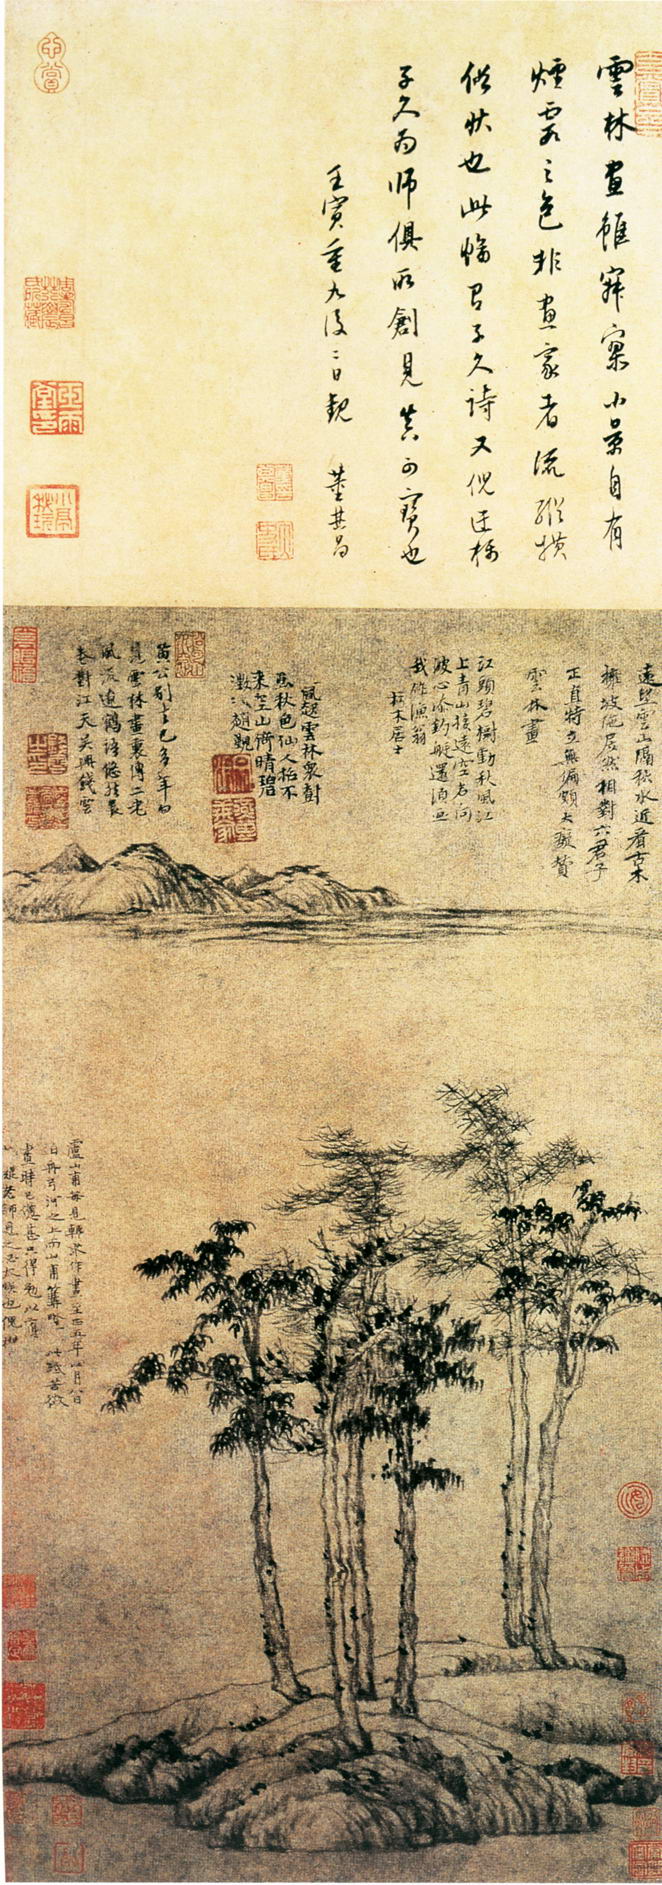 雲林畫雖寂寞小景自有
煙霞之色非畫家者流縱橫
俗狀也此幅有子久詩又倪迂稱
子久為師俱所創見真可寶也
壬寅重九後二日觀 董其昌
遠望雲山隔秋水近看古木
擁坡陁居然相對六君子
正直特立無偏頗大癡贊
雲林畫
江頭碧樹動秋風江
上青山接遠空若向
波心添釣艇還須畫
我作漁翁
朽木居士
風起雲林眾樹
鳴秋色仙人招不
來空山倚晴碧
澂江趙覲
黃公別去已多年忽
見雲林畫裏傳二老
風流遼鶴語悠然展
卷對江天吳興錢雲
盧山甫每見輒求作畫至正五年四月八日
泊舟弓河之上而山甫篝燈出此紙苦徵
畫時已憊甚只得勉以應
之大癡老師見之必大笑也倪瓚